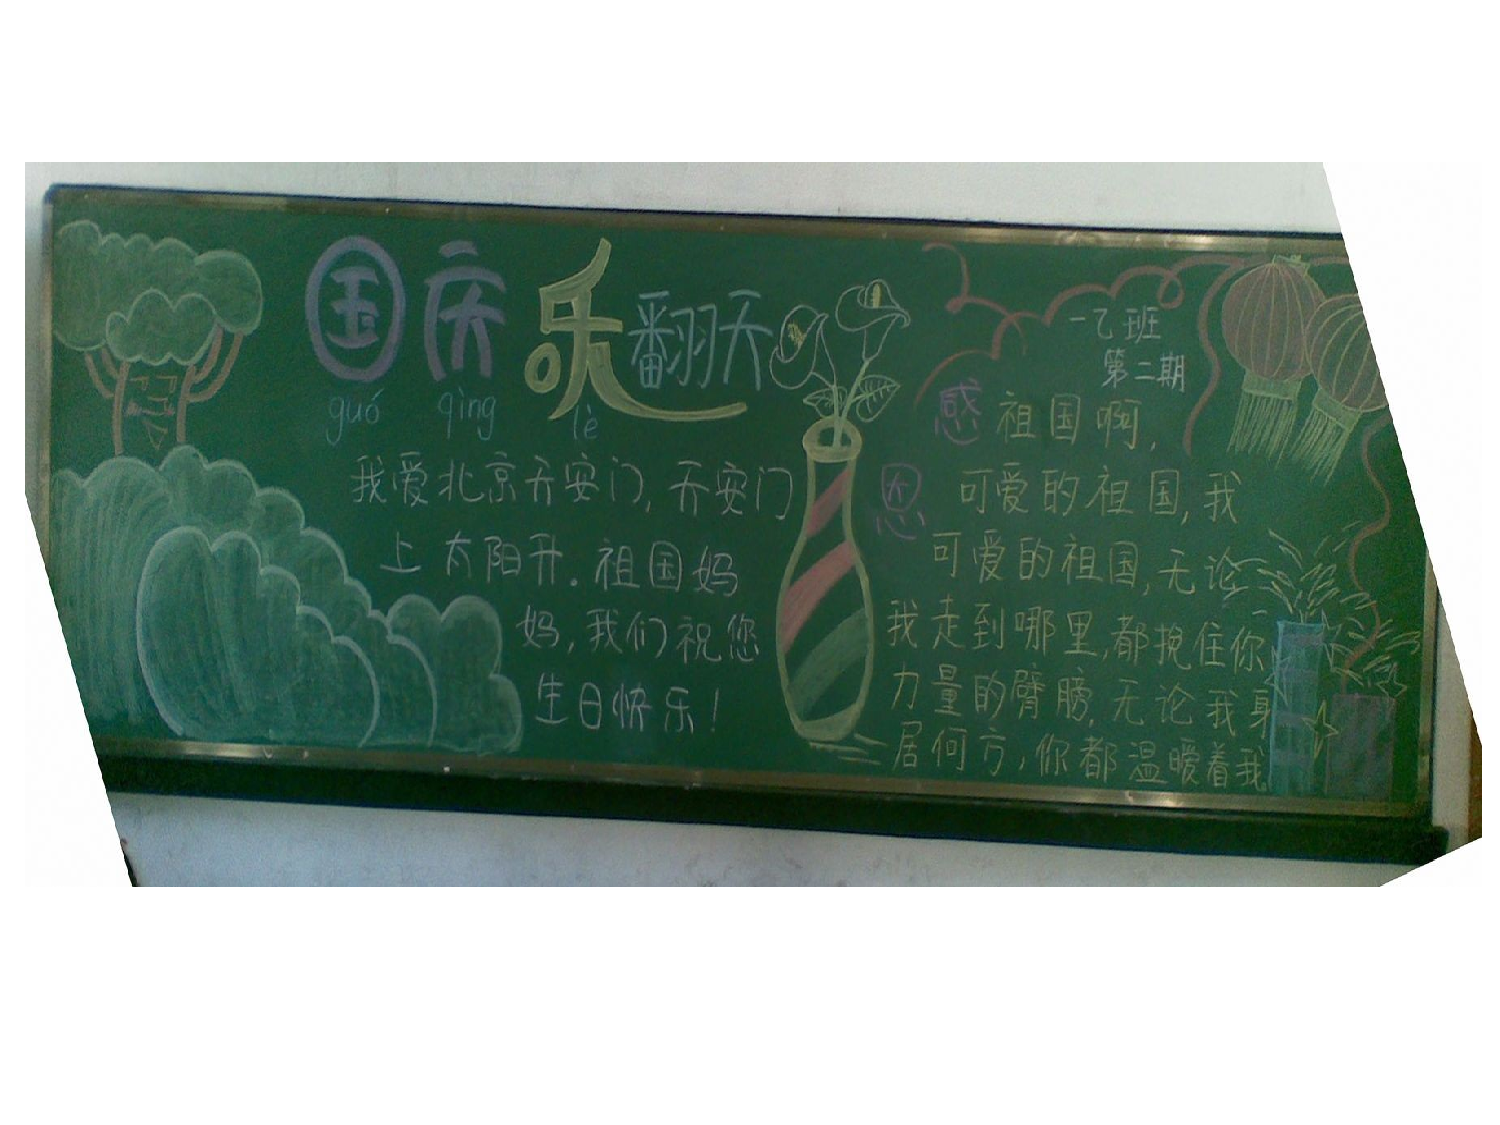 国庆乐翻天
guó qìng lè
我爱北京天安门,天安门
上太阳升.祖国妈
妈,我们祝您
生日快乐!
一乙班
第二期
感恩
祖国啊,
可爱的祖国,我
可爱的祖国,无论
我走到哪里,都挽住你
力量的臂膀,无论我身
居何方,你都温暖着我